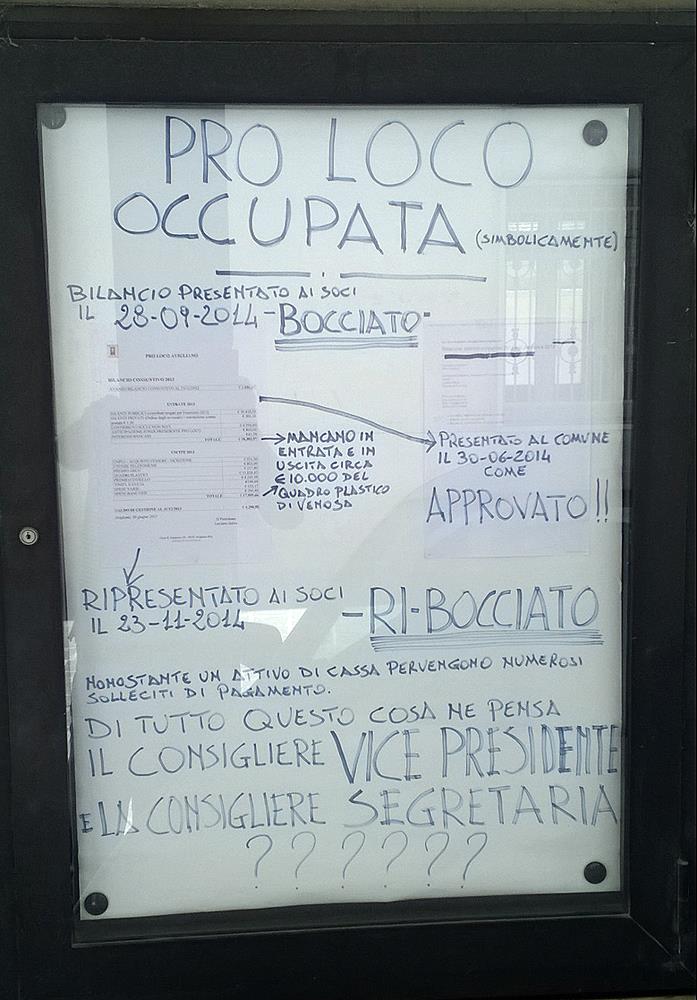 PRO LOCO
OCCUPATA (SIMBOLICAMENTE)
BILANCIO PRESENTATO AI SOCI
IL 28-09-2014 - BOCCIATO -
PRO LOCO AVIGLIANO
BILANCIO CONSUNTIVO 2013
ENTRATE 2013
TOTALE
USCITE 2013
TOTALE
MANCANO IN
ENTRATA E IN
USCITA CIRCA
€ 10.000 DEL
QUADRO PLASTICO
DI VENOSA
PRESENTATO AL COMUNE
IL 30-06-2014
COME
APPROVATO !!
RIPRESENTATO AI SOCI
IL 23-11-2014 - RI-BOCCIATO
NONOSTANTE UN ATTIVO DI CASSA PERVENGONO NUMEROSI
SOLLECITI DI PAGAMENTO.
DI TUTTO QUESTO COSA NE PENSA
IL CONSIGLIERE VICE PRESIDENTE
E LA CONSIGLIERE SEGRETARIA
? ? ? ? ? ?